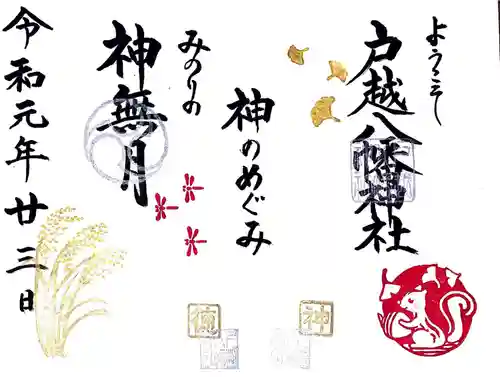 ようこそ
戸越八幡神社
神のめぐみ
みのりの
神無月
令和元年廿三日
神
徳